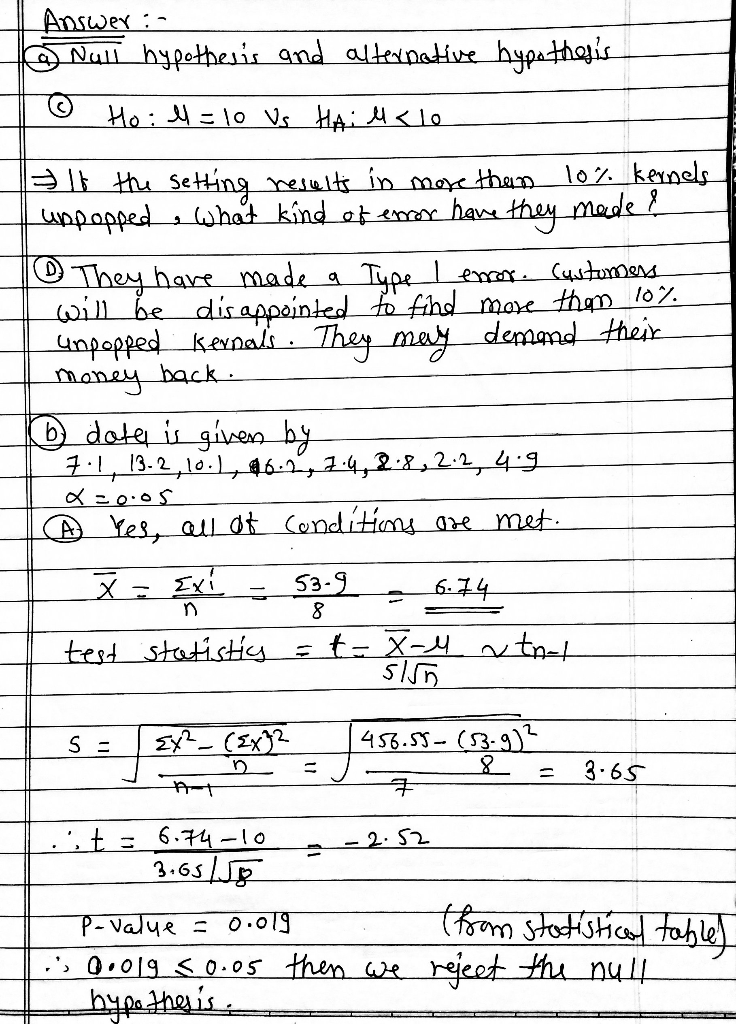 Answer :-
(a) Null hypothesis and alternative hypothesis
(c) H0 : M = 10 Vs HA: M < 10
⇒ If the setting results in more than 10% kernels
unpopped, What kind of error have they made?
(D) They have made a Type 1 error. Customers
will be disappointed to find more than 10%
unpopped kernals. They may demand their
money back.
(b) data is given by
7.1, 13.2, 10.1, 6.2, 7.4, 2.8, 2.2, 4.9
α = 0.05
(A) Yes, all of conditions are met.
x̄ = Σxi/n = 53.9/8 = 6.74
test statistics = t = x̄-M / s/√n ~ tn-1
S = √((Σx² - (Σx)²/n) / n-1) = √((456.55 - (53.9)²/8) / 7) = 3.65
∴ t = 6.74-10 / 3.65/√8 = -2.52
P-value = 0.019 (from statistical table)
∴ 0.019 ≤ 0.05 then we reject the null
hypothesis.